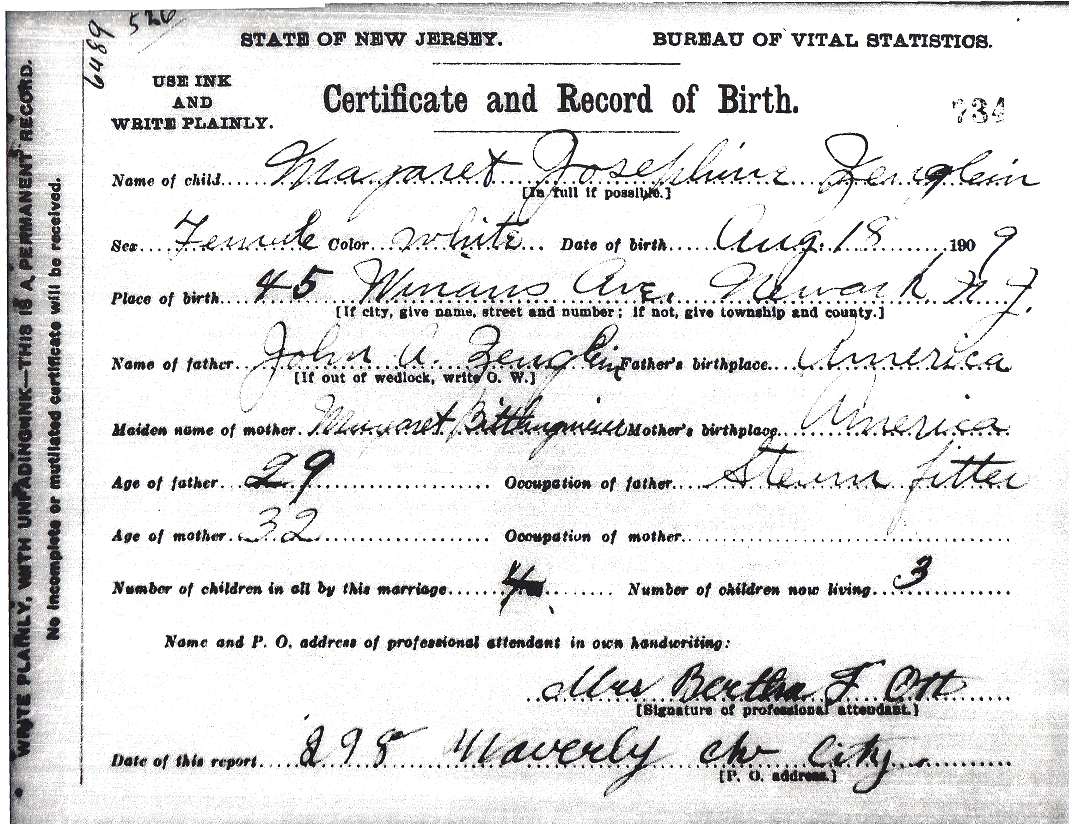 6489 526
STATE OF NEW JERSEY. BUREAU OF VITAL STATISTICS.
USE INK
AND
WRITE PLAINLY.
Certificate and Record of Birth.
734
Name of child Magaret Josephine Zenglein
[In full if possible.]
Sex Female Color White Date of birth Aug. 18 1909
Place of birth 45 Winans Ave. Newark N J.
[If city, give name, street and number; if not, give township and county.]
Name of father John A. Zenglein Father's birthplace America
[If out of wedlock, write O. W.]
Maiden name of mother Margaret Mother's birthplace America
Age of father 29 Occupation of father Steam fitter
Age of mother 32 Occupation of mother
Number of children in all by this marriage 4 Number of children now living 3
Name and P. O. address of professional attendant in own handwriting:
Mrs Bertha F Ott
[Signature of professional attendant.]
Date of this report 298 Waverly Av City
[P. O. address.]
WRITE PLAINLY, WITH UNFADING INK—THIS IS A PERMANENT RECORD.
No incomplete or mutilated certificate will be received.